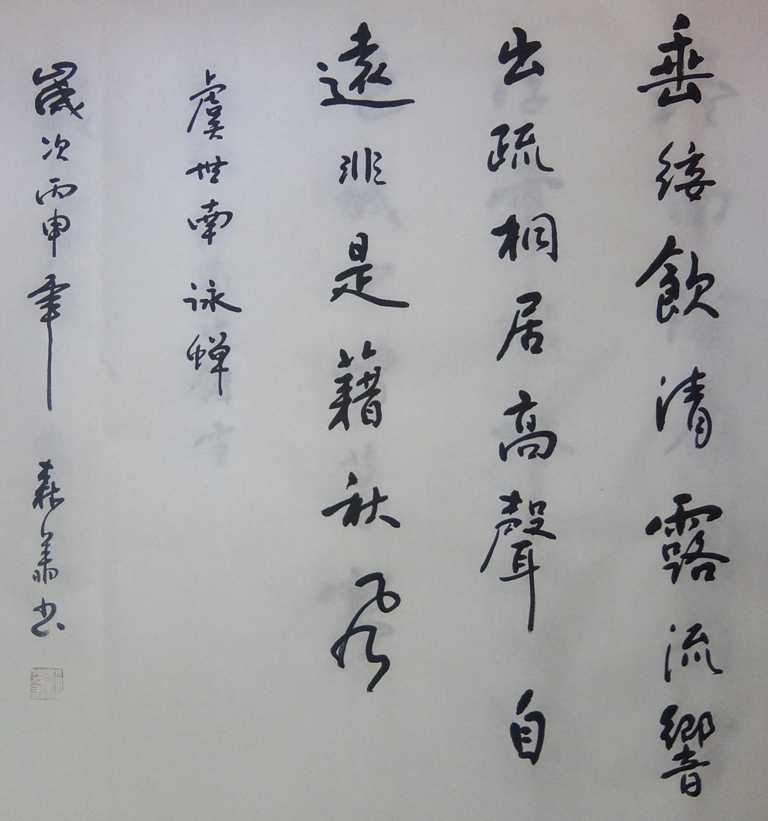 垂緌飲清露流響
出疏桐居高聲自
遠非是藉秋风
虞世南咏蝉
歲次丙申年 森肅书